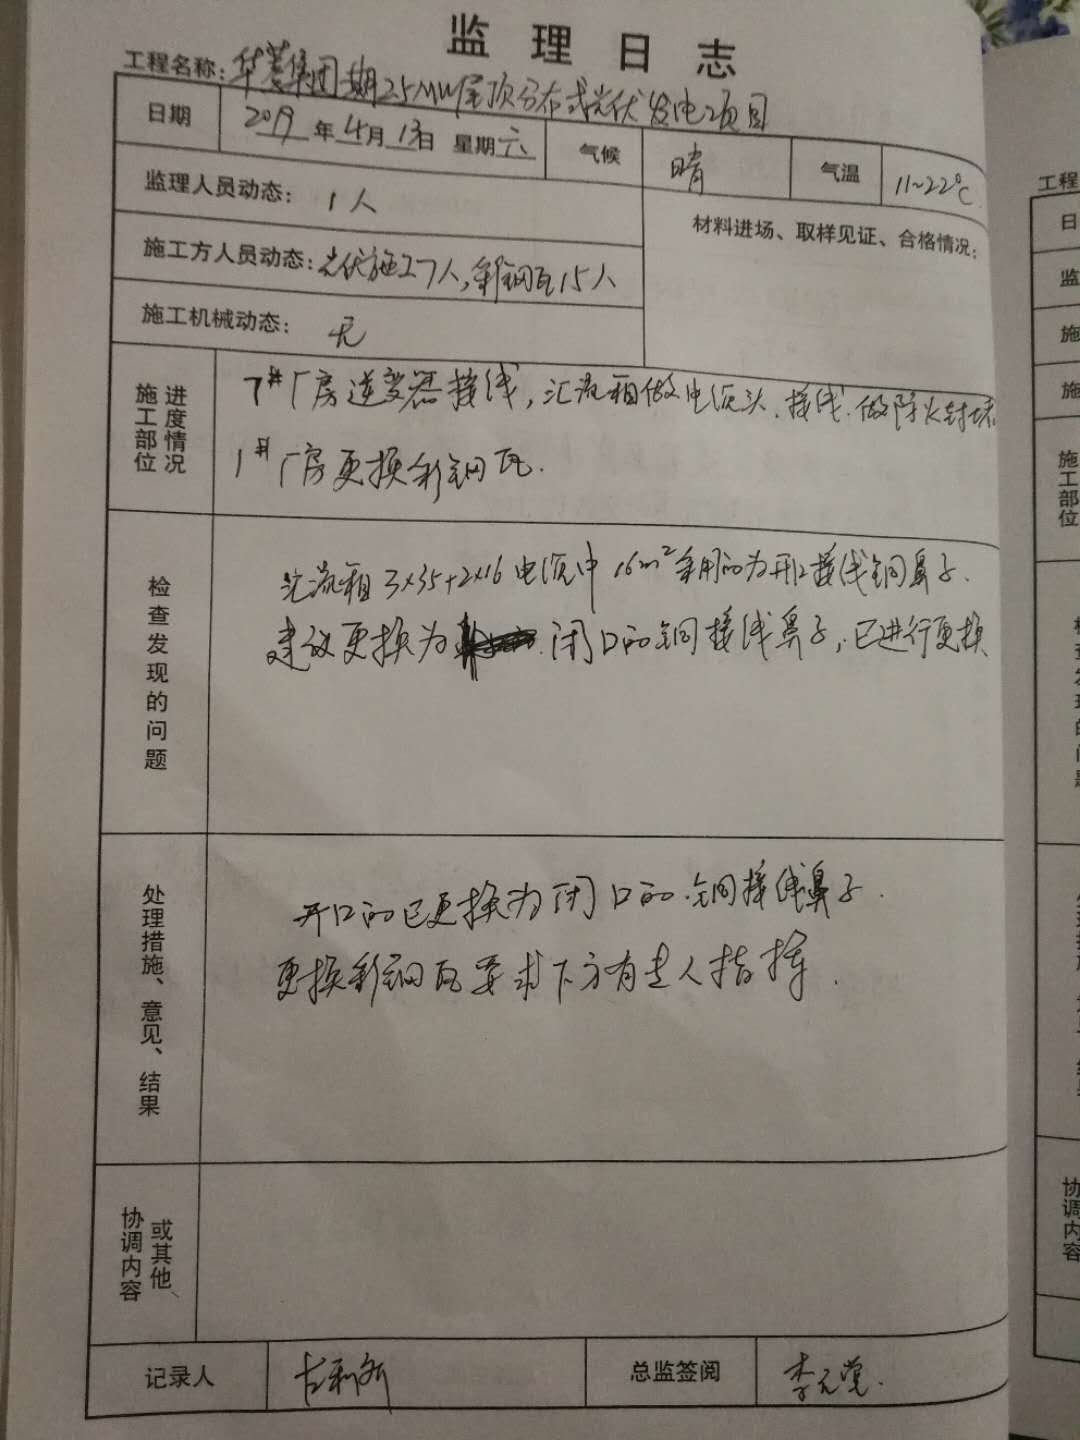 监理日志
工程名称：华菱集团一期25MW屋顶分布式光伏发电项目
日期 2019年4月13日 星期六 气候 晴 气温 11~22℃
监理人员动态： 1人
材料进场、取样见证、合格情况：
施工方人员动态：光伏施工7人，彩钢瓦15人
施工机械动态： 无
施工部位进度情况
7#厂房逆变器接线，汇流箱做电缆头、接线、做防火封堵
1#厂房更换彩钢瓦.
检查发现的问题
汇流箱3×35+2×16电缆中16m²采用的为开口接线铜鼻子.
建议更换为闭口的铜接线鼻子，已进行更换
处理措施、意见、结果
开口的已更换为闭口的铜接线鼻子.
更换彩钢瓦要求下方有专人指挥.
协调内容或其他
记录人 总监签阅 李元党.
工程
日
监
施
施
施工部位
协调内容